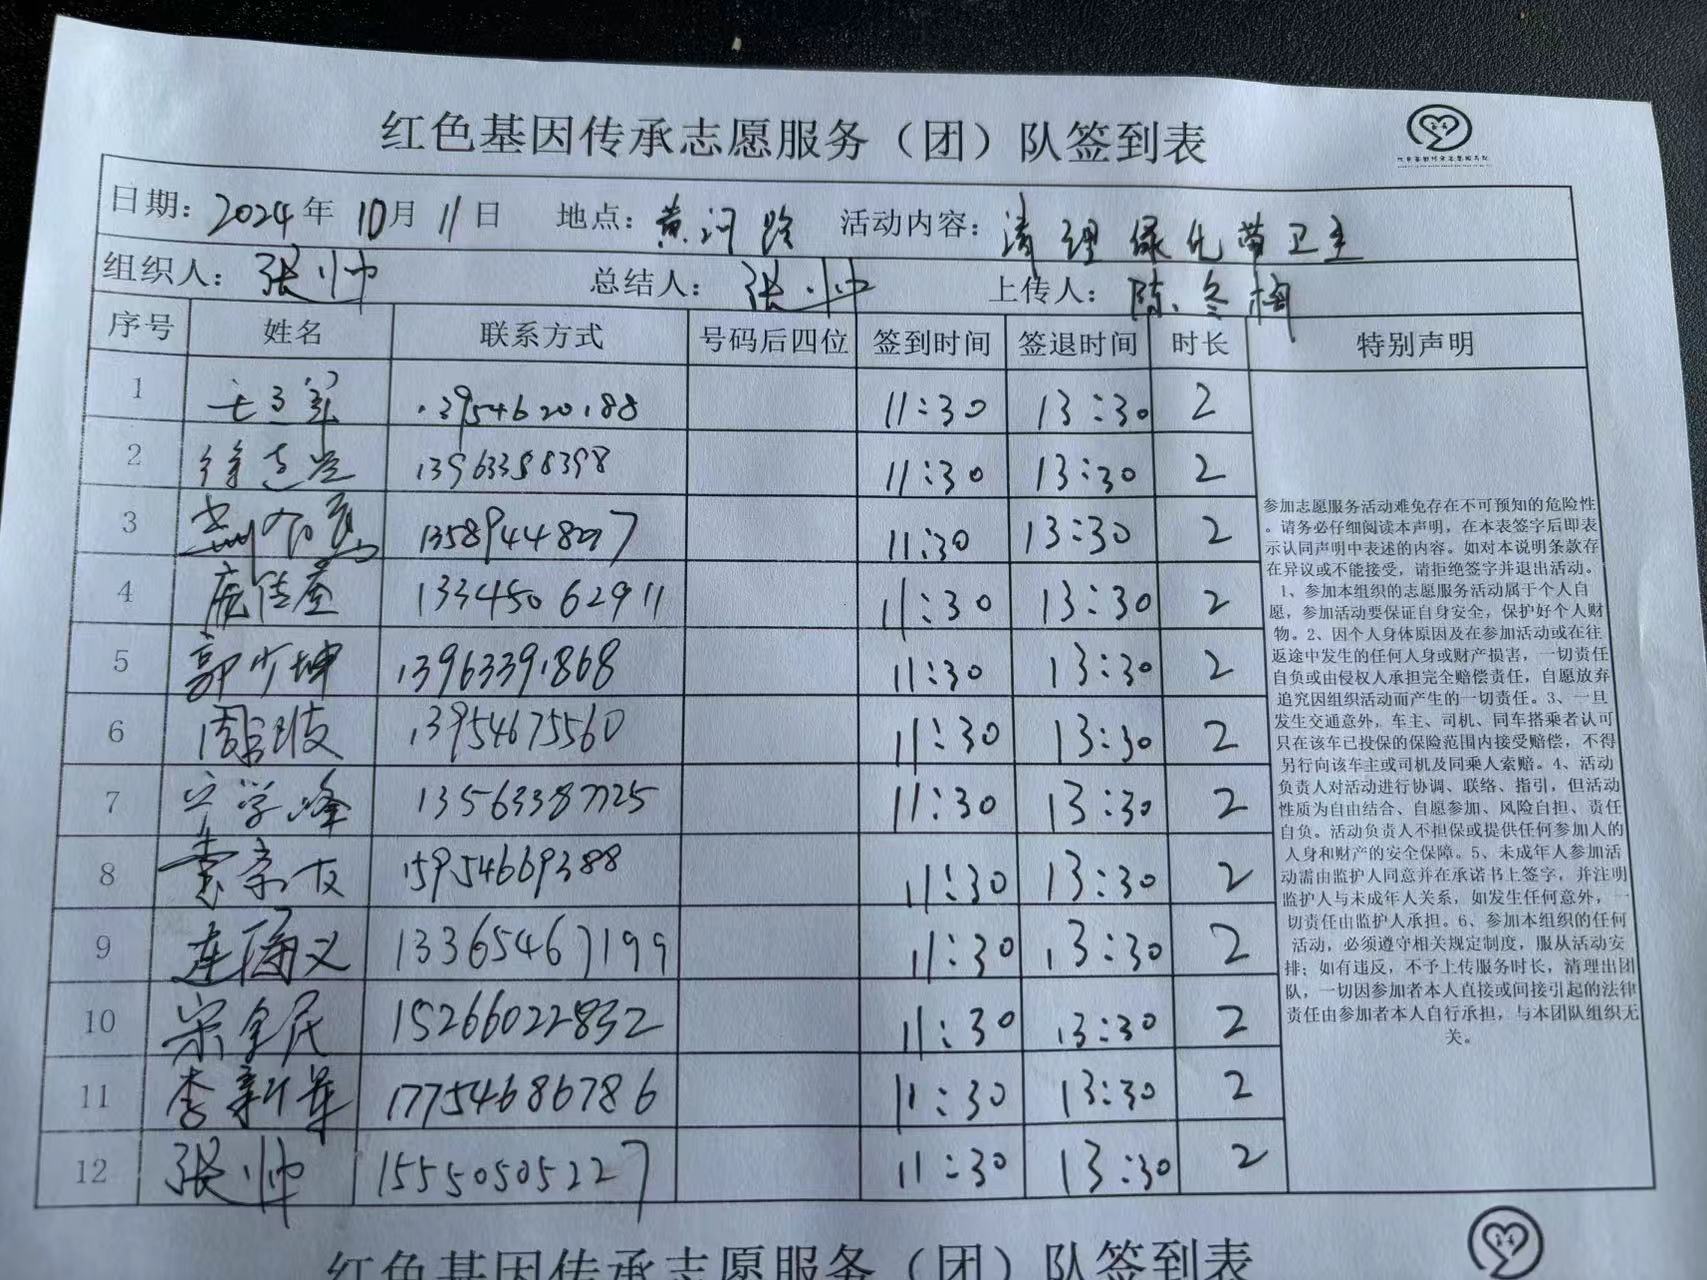 红色基因传承志愿服务（团）队签到表
日期：2024年10月11日 地点：黄河路 活动内容：清理绿化带卫生
组织人：张帅 总结人：张帅 上传人：陈冬梅
序号 姓名 联系方式 号码后四位 签到时间 签退时间 时长 特别声明
1 13954620188 11:30 13:30 2
2 徐志 13963358398 11:30 13:30 2
3 11:30 13:30 2
4 庞 13345062911 11:30 13:30 2
5 郭少坤 13963391868 11:30 13:30 2
6 周 13954675560 11:30 13:30 2
7 学峰 13563387725 11:30 13:30 2
8 15954669388 11:30 13:30 2
9 连 义 13365467199 11:30 13:30 2
10 宋全民 15266022832 11:30 13:30 2
11 李新军 17754686786 11:30 13:30 2
12 张帅 15550505227 11:30 13:30 2
参加志愿服务活动难免存在不可预知的危险性
。请务必仔细阅读本声明，在本表签字后即表
示认同声明中表述的内容。如对本说明条款存
在异议或不能接受，请拒绝签字并退出活动。
1、参加本组织的志愿服务活动属于个人自
愿，参加活动要保证自身安全，保护好个人财
物。2、因个人身体原因及在参加活动或在往
返途中发生的任何人身或财产损害，一切责任
自负或由侵权人承担完全赔偿责任，自愿放弃
追究因组织活动而产生的一切责任。3、一旦
发生交通意外，车主、司机、同车搭乘者认可
只在该车已投保的保险范围内接受赔偿，不得
另行向该车主或司机及同乘人索赔。4、活动
负责人对活动进行协调、联络、指引，但活动
性质为自由结合、自愿参加、风险自担、责任
自负。活动负责人不担保或提供任何参加人的
人身和财产的安全保障。5、未成年人参加活
动需由监护人同意并在承诺书上签字，并注明
监护人与未成年人关系，如发生任何意外，一
切责任由监护人承担。6、参加本组织的任何
活动，必须遵守相关规定制度，服从活动安
排；如有违反，不予上传服务时长，清理出团
队，一切因参加者本人直接或间接引起的法律
责任由参加者本人自行承担，与本团队组织无
关。
红色基因传承志愿服务（团）队签到表